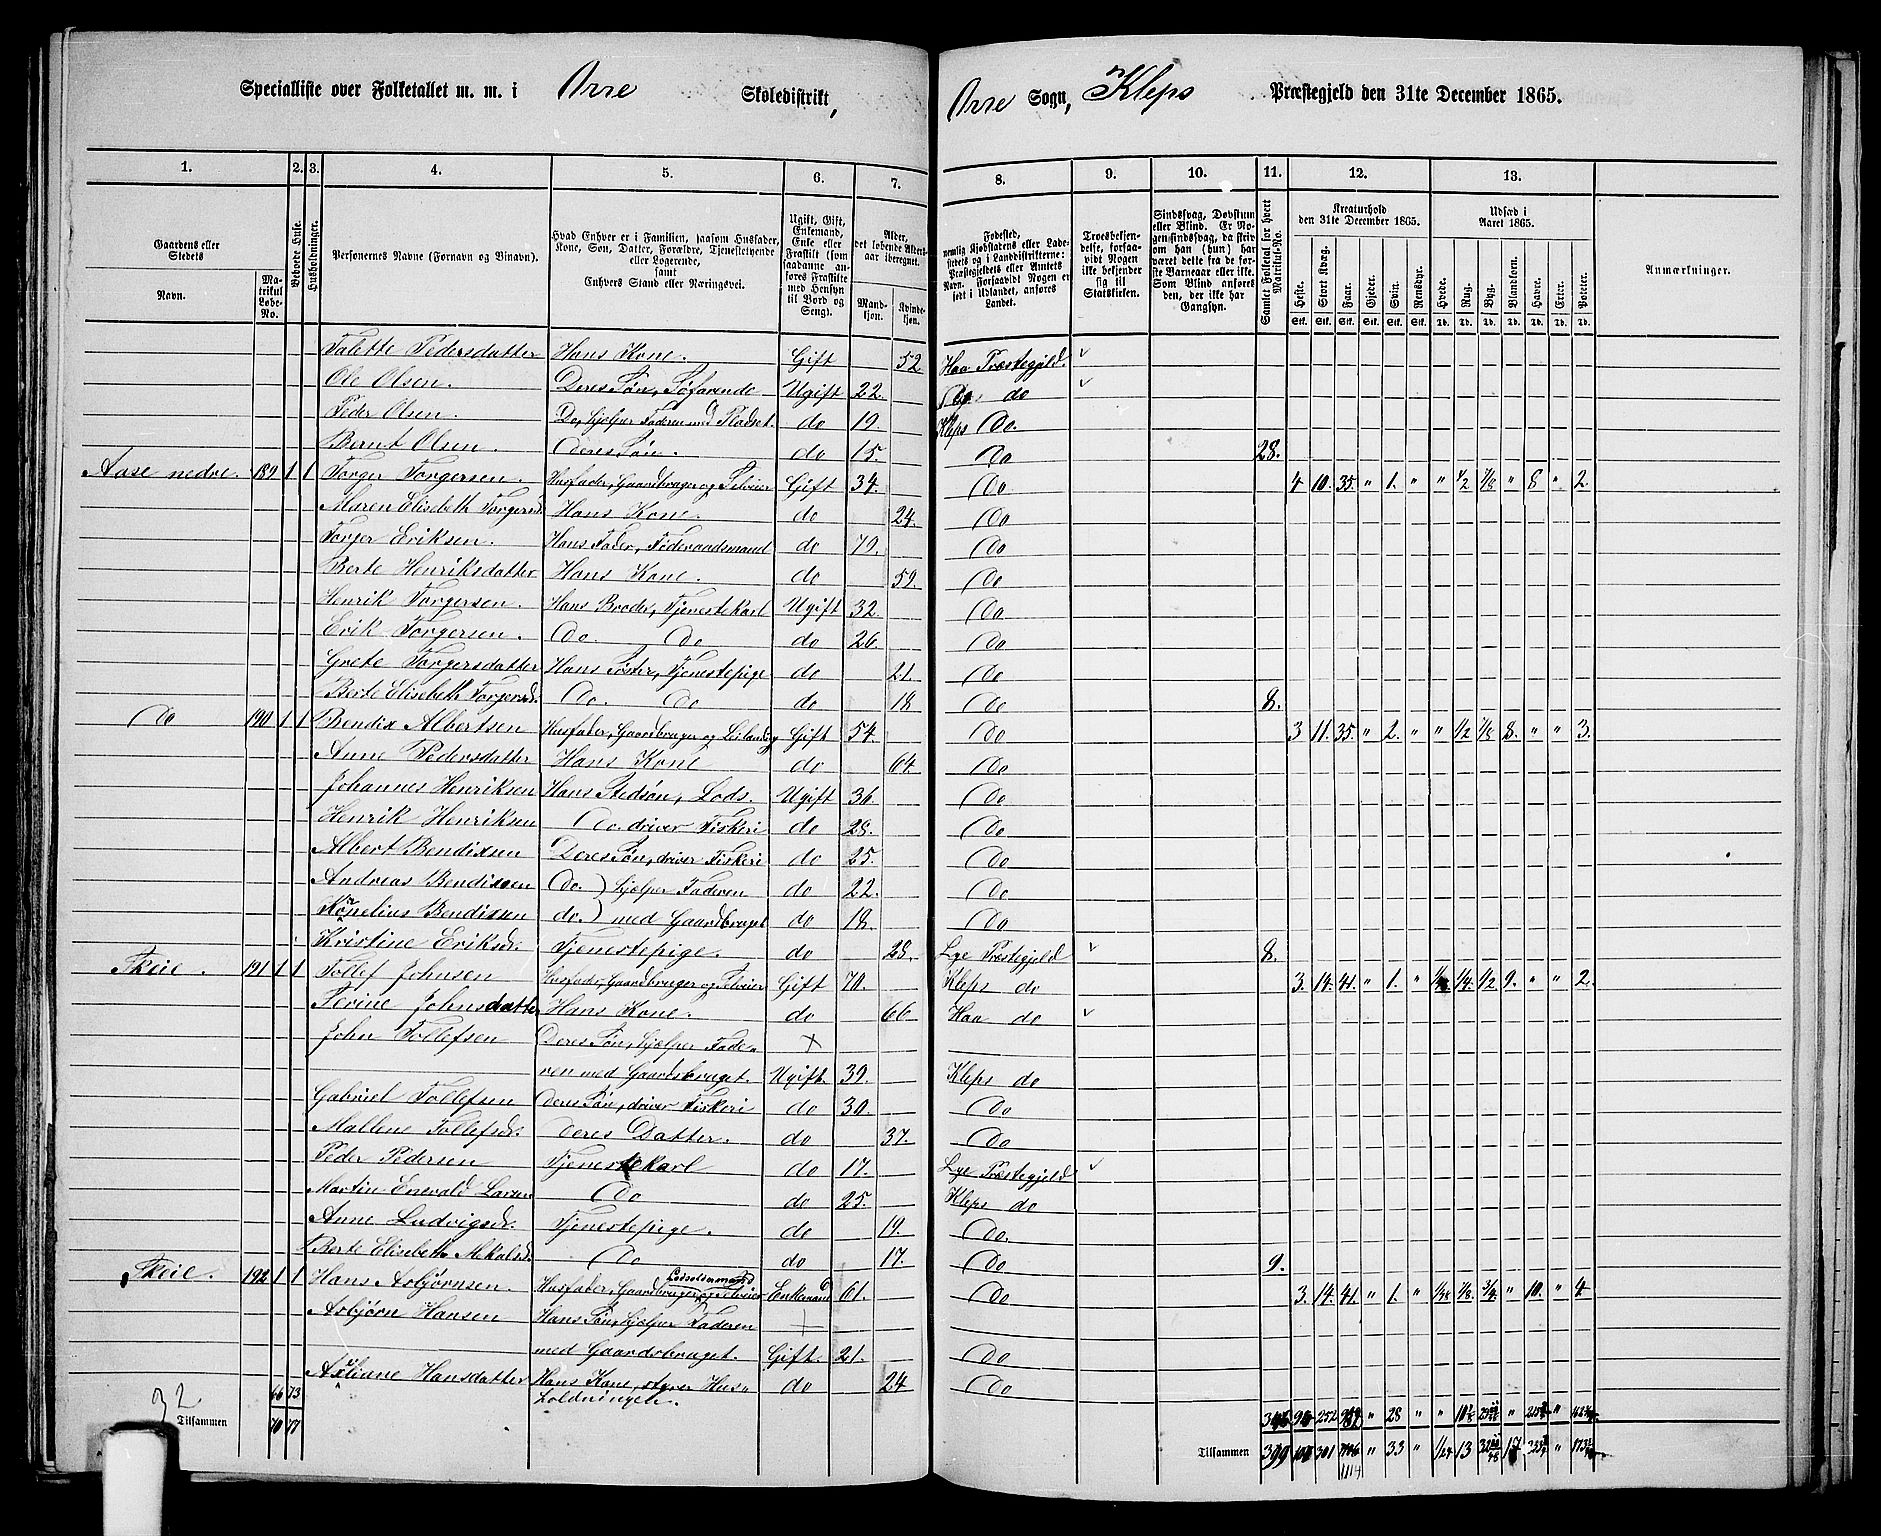 Specialliste over Folketallet m. m. i Orre Skoledistrikt, Orre Sogn, Kleps Præstegjeld den 31te December 1865.
1. 2. 3. 4. 5. 6. 7. 8. 9. 10. 11. 12. 13.
Gaardens eller Stedets Navn. Matrikul Løbe-No. Beboede Huse. Husholdninger. Personernes Navne (Fornavn og Tilnavn). Hvad Enhver er i Familien, saasom Husfader, Kone, Søn, Datter, Forældre, Tjenestetyende eller Logerende, samt Enhvers Stand eller Næringsvei. Ugift, Gift, Enkemand, Enke eller Fraskilt (som saadanne anføres Fraskilte med Hensyn til Bord og Seng). Alder, det løbende Alderaar iberegnet. Mandkjøn. Kvindekjøn.
Fødested, nemlig Kjøbstadens eller Ladestedets og i Landdistrikterne: Præstegjeldets eller Amtets Navn. Forsaavidt Nogen er født i Udlandet, anføres Landet. Troesbekjendelse, forsaavidt Nogen ikke bekjender sig til Statskirken. Sindssvag, Døvstum eller Blind. Samlet Folketal for hvert Matrikul-No. Kreaturhold den 31te December 1865. Udsæd i Aaret 1865. Anmærkninger.
Heste. Stort Kvæg. Faar. Gjeder. Svin. Rensdyr. Hvede. Rug. Byg. Blandkorn. Havre. Erter. Poteter.
Talette Pedersdatter Hans Kone. Gift 52 Haa Præstegjeld
Ole Olsen. Deres Søn, Søfarende Ugift 22. do
Peder Olsen. Do, hjelper Faderen med Pladset. do 19. Kleps Do.
Bernt Olsen. Deres Søn. do 15 Do 28.
Aase nedre. 189 1 1 Torger Torgersen. Husfader, Gaardbruger og Selveier Gift 34. Do 4 10. 35. " 1. " " 1/2 7/8 " 8 " 2.
Maren Elisebeth Torgersd. Hans Kone. do 24. Do
Torger Eriksen. Hans Fader, Føderaadsmand do 79. Do
Berte Henriksdatter Hans Kone. do 59. Do
Henrik Torgersen. Hans Broder, Tjenestekarl Ugift 32. Do
Erik Torgersen. Do. Do do 26. Do
Grete Torgersdatter Hans Søster, Tjenestepige do 21. Do
Berte Elisebeth Torgersd. Do. Do do 18 Do 8.
Do 190 1 1 Bendix Albertsen Husfader, Gaardbruger og Leilænding Gift 54. Do 3 11. 35. " 2. " " 1/2 7/8 8. " " 3.
Anne Pedersdatter Hans Kone do 64. Do
Johannes Henriksen Hans Stedsøn, Lods. Ugift 36. Do
Henrik Henriksen Do. driver Fiskeri do 28. Do
Albert Bendixsen Deres Søn, driver Fiskeri do 25. Do
Andreas Bendixsen Do. ) hjælper Faderen do 22. Do
Kornelius Bendixsen do. ) med Gaardbruget do 18. Do
Kristine Eriksd. Tjenestepige. do 28. Lye Præstegjeld 8.
Skeie. 191 1 1 Tollef Johnsen Husfader, Gaardbruger og Selveier Gift 70. Kleps do 3. 14. 41. " 1. " 1/4 1/2 9. " " 2.
Serine Johnsdatter Hans Kone. do 66 Haa do
John Tollefsen Deres Søn, hjælper Fade-
ren med Gaardsbruget. Ugift. 39. Kleps do
Gabriel Tollefsen Deres Søn, driver Fiskeri do 30. Do
Mallene Tollefsd. Deres Datter. do 37. Do
Peder Pedersen Tjenestekarl do 17. Lye Præstegjeld
Martin Enevald Larsen Do do 25. Kleps do
Anne Ludvigsd. Tjenestepige. do 19. Do.
Berte Elisebeth Mikalsd. Do do 17. Do 9.
Skeie. 192 1 1 Hans Asbjørnsen. Husfader, Gaardbruger Lodsoldermand og Selveier Enkemand 61. Do 3. 14. 41. " 1. " 1/48 1/8 3/4 " 10. " 4
Asbjørn Hansen Hans Søn, hjelper Faderen
med Gaardsbruget. Gift. 21. Do
Hansdatter Hans Kone, styrer Hus-
holdningen. do 24 Do
32 66 73
Tilsammen 70 77
252 " 28 "
Tilsammen 399 301 1114 " 33 " 1/24 13 17 "